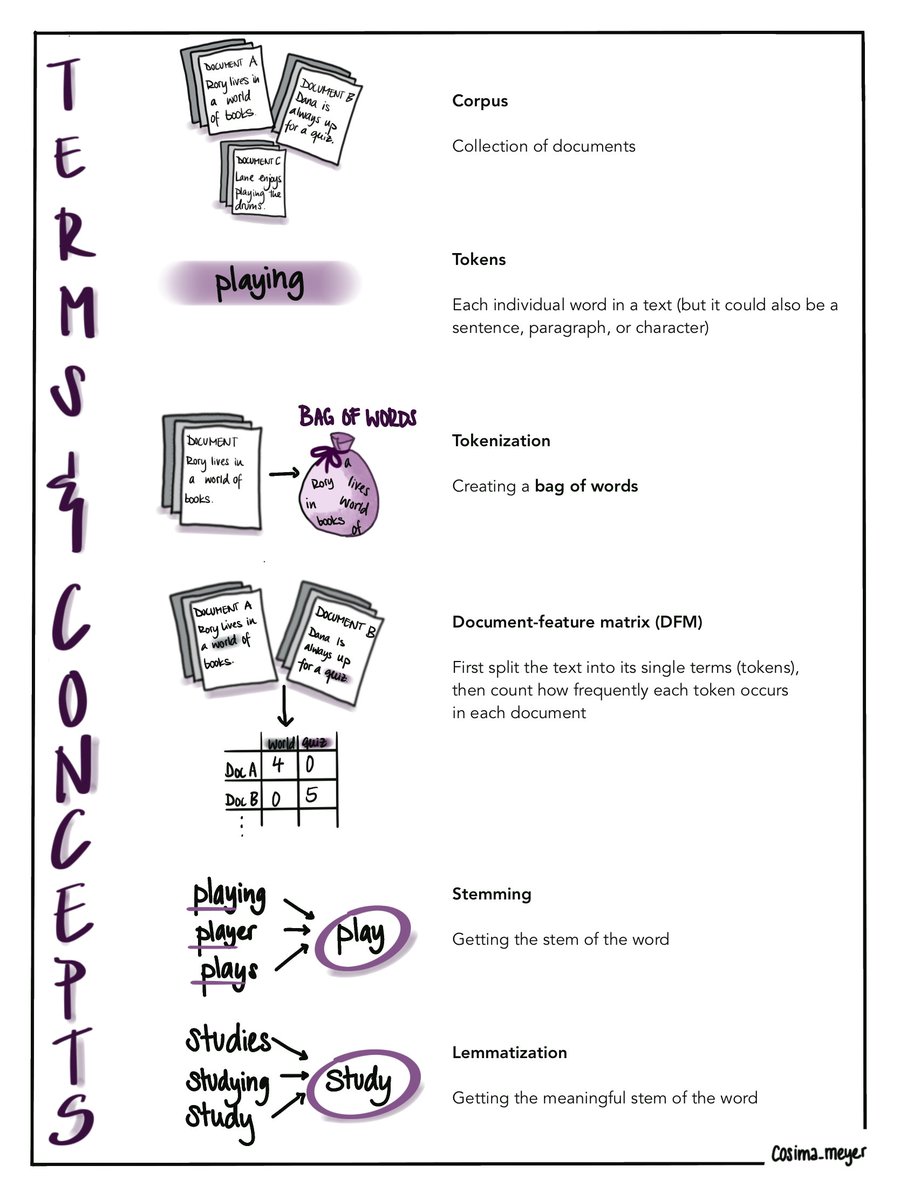 TERMS & CONCEPTS
DOCUMENT A
Rory lives in
a world
of books.
DOCUMENT B
Dana is
always up
for a quiz.
DOCUMENT C
Lane enjoys
playing the
drums.
Corpus
Collection of documents
playing
Tokens
Each individual word in a text (but it could also be a
sentence, paragraph, or character)
BAG OF WORDS
DOCUMENT
Rory lives in
a world of
books.
a
Rory
lives
in
world
books
of
Tokenization
Creating a bag of words
DOCUMENT A
Rory lives in
a world of
books.
DOCUMENT B
Dana is
always up
for a quiz.
world quiz
Doc A 4 0
Doc B 0 5
Document-feature matrix (DFM)
First split the text into its single terms (tokens),
then count how frequently each token occurs
in each document
playing
player
plays
play
Stemming
Getting the stem of the word
studies
studying
study
study
Lemmatization
Getting the meaningful stem of the word
cosima_meyer